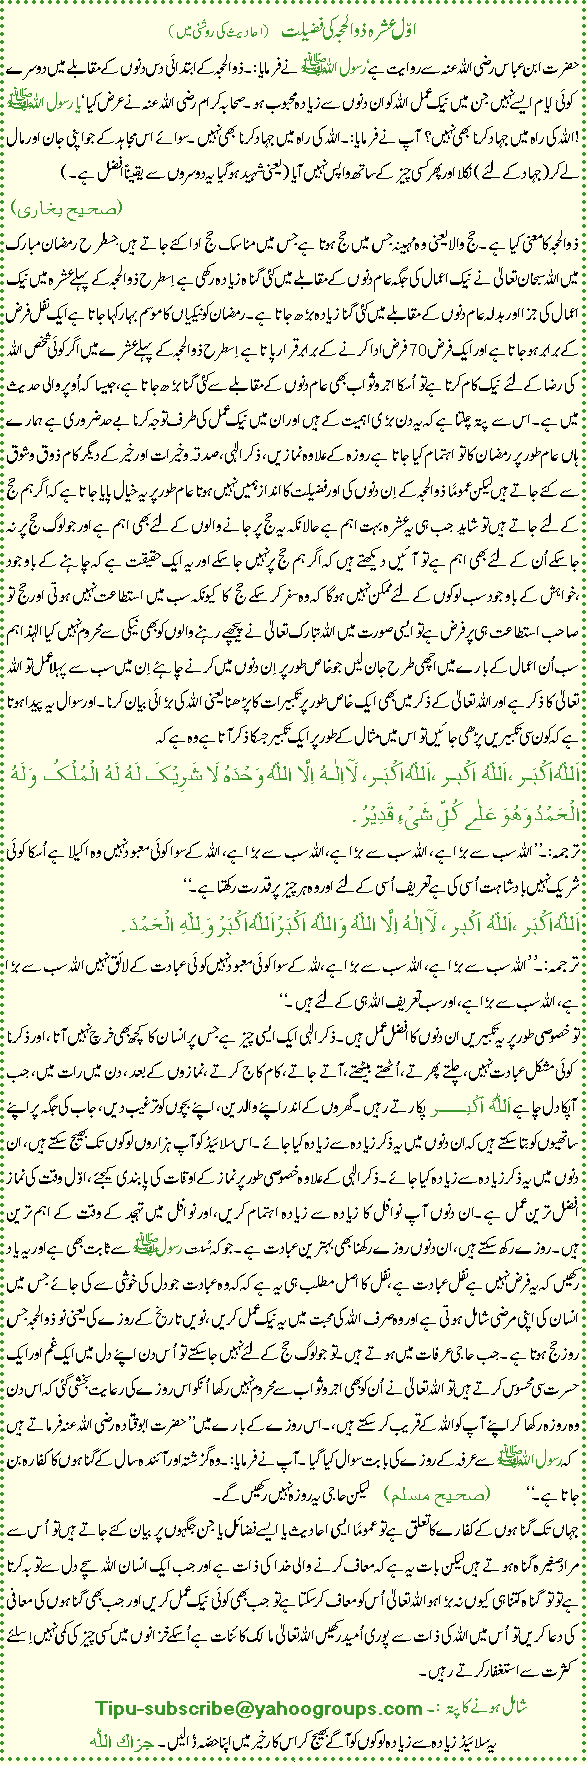 اوّل عشرہ ذوالحجہ کی فضیلت (احادیث کی روشنی میں)
حضرت ابن عباس رضی اللہ عنہ سے روایت ہے رسول اللہ ﷺ نے فرمایا:۔ ذوالحجہ کے ابتدائی دس دنوں کے مقابلے میں دوسرے
کوئی ایام ایسے نہیں جن میں نیک عمل اللہ کو ان دنوں سے زیادہ محبوب ہو۔ صحابہ کرام رضی اللہ عنہ نے عرض کیا 'یا رسول اللہ ﷺ
!اللہ کی راہ میں جہاد کرنا بھی نہیں؟ آپ نے فرمایا:۔ اللہ کی راہ میں جہاد کرنا بھی نہیں۔ سوائے اس مجاہد کے جو اپنی جان اور مال
لے کر (جہاد کے لئے) نکلا اور پھر کسی چیز کے ساتھ واپس نہیں آیا (یعنی شہید ہو گیا یہ دوسروں سے یقیناً افضل ہے۔)
(صحیح بخاری)
ذوالحجہ کا معنی کیا ہے۔ حج والا یعنی وہ مہینہ جس میں حج ہوتا ہے جس میں مناسک حج ادا کئے جاتے ہیں جسطرح رمضان مبارک
میں اللہ سبحان تعالیٰ نے نیک اعمال کی جگہ عام دنوں کے مقابلے میں کئی گناہ زیادہ رکھی ہے اِسطرح ذوالحجہ کے پہلے عشرہ میں نیک
اعمال کی جزا اور بدلہ عام دنوں کے مقابلے میں کئی گنا زیادہ بڑھ جاتا ہے۔ رمضان کو نیکیاں کا موسم بہار کہا جاتا ہے ایک نفل فرض
کے برابر ہو جاتا ہے اور ایک فرض 70 فرض ادا کرنے کے برابر قرار پاتا ہے اِسطرح ذوالحجہ کے پہلے عشرے میں اگر کوئی شخص اللہ
کی رضا کے لئے نیک کام کرتا ہے تو اُسکا اجر و ثواب بھی عام دنوں کے مقابلے سے کئی گنا بڑھ جاتا ہے، جیسا کہ اُوپر والی حدیث
میں ہے۔ اس سے پتہ چلتا ہے کہ یہ دن بڑی اہمیت کے ہیں اور ان میں نیک عمل کی طرف توجہ کرنا بے حد ضروری ہے ہمارے
ہاں عام طور پر رمضان کا تو اہتمام کیا جاتا ہے روزہ کے علاوہ نمازیں، ذکر الٰہی، صدقہ و خیرات اور خیر کے دیگر کام ذوق و شوق
سے کئے جاتے ہیں لیکن عموماً ذوالحجہ کے اِن دنوں کی اور فضیلت کا اندازہمیں نہیں ہوتا عام طور پر یہ خیال پایا جاتا ہے کہ اگر ہم حج
کے لئے جاتے ہیں تو شاید جب ہی یہ عشرہ بہت اہم ہے حالانکہ یہ حج پر جانے والوں کے لئے بھی اہم ہے اور جو لوگ حج پر نہ
جا سکے اُن کے لئے بھی اہم ہے تو آئیں دیکھتے ہیں کہ اگر ہم حج پر نہیں جا سکے اور یہ ایک حقیقت ہے کہ چاہنے کے باوجود
،خواہش کے باوجود سب لوکوں کے لئے ممکن نہیں ہوگا کہ وہ سفر کر سکے حج کا کیونکہ سب میں استطاعت نہیں ہوتی اور حج تو
صاحب استطاعت ہی پر فرض ہے تو ایسی صورت میں اللہ تبارک تعالیٰ نے پیچھے رہنے والوں کو بھی نیکی سے محروم نہیں کیا الہٰذا ہم
سب اُن اعمال کے بارے میں اچھی طرح جان لیں جو خاص طور پر اِن دنوں میں کرنے چاہئے اِن میں سب سے پہلا عمل تو اللہ
تعالیٰ کا ذکر ہے اور اللہ تعالیٰ کے ذکر میں بھی ایک خاص طور پر تکبیرات کا پڑھنا یعنی اللہ کی بڑائی بیان کرنا۔ اور سوال یہ پیدا ہوتا
ہے کہ کون سی تکبیریں پڑھی جائیں تو اس میں مثال کے طور پر ایک تکبیر جسکا ذکر آتا ہے وہ ہے کہ
اَللّٰہُ اَکْبَر، اَللّٰہُ اَکْبر، اَللّٰہُ اَکْبَر، لَآ اِلٰہَ اِلَّا اللّٰہُ وَحْدَہُ لَا شَرِیْکَ لَہُ لَہُ الْمُلْکُ وَلَہُ
الْحَمْدُ وَھُوَ عَلٰے کُلِّ شَیْءٍ قَدِیْرُ۔
ترجمہ:۔ ''اللہ سب سے بڑا ہے، اللہ سب سے بڑا ہے، اللہ سب سے بڑا ہے، اللہ کے سوا کوئی معبود نہیں وہ اکیلا ہے اُسکا کوئی
شریک نہیں بادشاہت اُسی کی ہے تعریف اُسی کے لئے اور وہ ہر چیز پر قدرت رکھتا ہے۔''
اَللّٰہُ اَکْبَر، اَللّٰہُ اَکْبر، لَآ اِلٰہَ اِلَّا اللّٰہُ وَاللّٰہُ اَکْبَرْ اَللّٰہُ اَکْبَرْ وَ لِلّٰہِ الْحَمْدَ۔
ترجمہ:۔ ''اللہ سب سے بڑا ہے، اللہ سب سے بڑا ہے، اللہ کے سوا کوئی معبود نہیں کوئی عبادت کے لائق نہیں اللہ سب سے بڑا
ہے، اللہ سب سے بڑا ہے، اور سب تعریف اللہ ہی کے لئے ہیں۔''
تو خصوصی طور پر یہ تکبیریں ان دنوں کا افضل عمل ہیں۔ ذکر الٰہی ایک ایسی چیز ہے جس پر انسان کا کچھ بھی خرچ نہیں آتا، اور ذکرنا
کوئی مشکل عبادت نہیں، چلتے پھرتے، اُٹھتے بیٹھتے، آتے جاتے، کام کاج کرتے، نمازوں کے بعد، دن میں رات میں، جب
آپکا دل چاہے اَللّٰہُ اَکْبَر پکارتے رہیں۔ گھروں کے اندر اپنے والدین، اپنے بچوں کو ترغیب دیں، جاب کی جگہ پر اپنے
ساتھیوں کو بتا سکتے ہیں کہ ان دنوں میں یہ ذکر زیادہ سے زیادہ کیا جائے۔ اس سلائیڈ کو آپ ہزاروں لوکوں تک بھیج سکتے ہیں، ان
دنوں میں یہ ذکر زیادہ سے زیادہ کیا جائے۔ ذکر الٰہی کے علاوہ خصوصی طور پر نماز کے اوقات کی پابندی کیجئے، اوّل وقت کی نماز
افضل ترین عمل ہے۔ ان دنوں آپ نوافل کا زیادہ سے زیادہ اہتمام کریں، اور نوافل میں تہجد کے وقت کے اہم ترین
ہیں۔ روزے رکھ سکتے ہیں، ان دنوں روزے رکھنا بھی بہترین عبادت ہے۔ جو کہ سنت رسول ﷺ سے ثابت بھی ہے اور یہ یاد
رکھیں کہ یہ فرض نہیں ہے نفل عبادت ہے، نفل کا اصل مطلب ہی یہ ہے کہ کہ وہ عبادت جو دل کی خوشی سے کی جائے جس میں
انسان کی اپنی مرضی شامل ہوتی ہے اور وہ صرف اللہ کی محبت میں یہ نیک عمل کریں، نویں تاریخ کے روزے کی یعنی نو ذوالحجہ جس
روز حج ہوتا ہے۔ جب حاجی عرفات میں ہوتے ہیں تو جو لوگ حج کے لئے نہیں جا سکتے تو اُس دن اپنے دل میں ایک غم اور ایک
حسرت سی محسوس کرتے ہیں تو اللہ تعالیٰ نے اُن کو بھی اجر و ثواب سے محروم نہیں رکھا اُنکو اس روزے کی رعایت بخشی گئی کہ اس دن
وہ روزہ رکھا کر اپنے آپ کو اللہ کے قریب کر سکتے ہیں،۔ اس روزے کے بارے میں ''حضرت ابو قتادہ رضی اللہ عنہ فرماتے ہیں
کہ رسول اللہ ﷺ سے عرفہ کے روزے کی بابت سوال کیا گیا۔ آپ نے فرمایا:۔ وہ گزشتہ اور آئندہ سال کے گناہوں کا کفارہ بن
جاتا ہے۔'' (صحیح مسلم) لیکن حاجی یہ روزہ نہیں رکھیں گے۔
جہاں تک گناہوں کے کفارے کا تعلق ہے تو عموماً ایسی احادیث یا ایسے فضائل یا جن جگہوں پر بیان کئے جاتے ہیں تو اُس سے
مراد صغیرہ گناہ ہوتے ہیں لیکن بات یہ ہے کہ معاف کرنے والی خدا کی ذات ہے اور جب ایک انسان اللہ سچے دل سے توبہ کرتا
ہے تو تو گناہ کتنا ہی کیوں نہ بڑا ہو اللہ تعالیٰ اُس کو معاف کر سکتا ہے تو جب بھی کوئی نیک عمل کریں اور جب بھی گناہوں کی معافی
کی دعا کریں تو اُس میں اللہ کی ذات سے پوری اُمید رکھیں اللہ تعالیٰ مالک کائنات ہے اُسکے خزانوں میں کسی چیز کی کمی نہیں اِسلئے
کثرت سے استغفار کرتے رہیں۔
شامل ہونے کا پتہ :۔ Tipu-subscribe@yahoogroups.com
یہ سلائیڈ زیادہ سے زیادہ لوکوں کو آگے بھیج کر اس کار خیر میں اپنا حصّہ ڈالیں۔ جزاک اللّٰہ